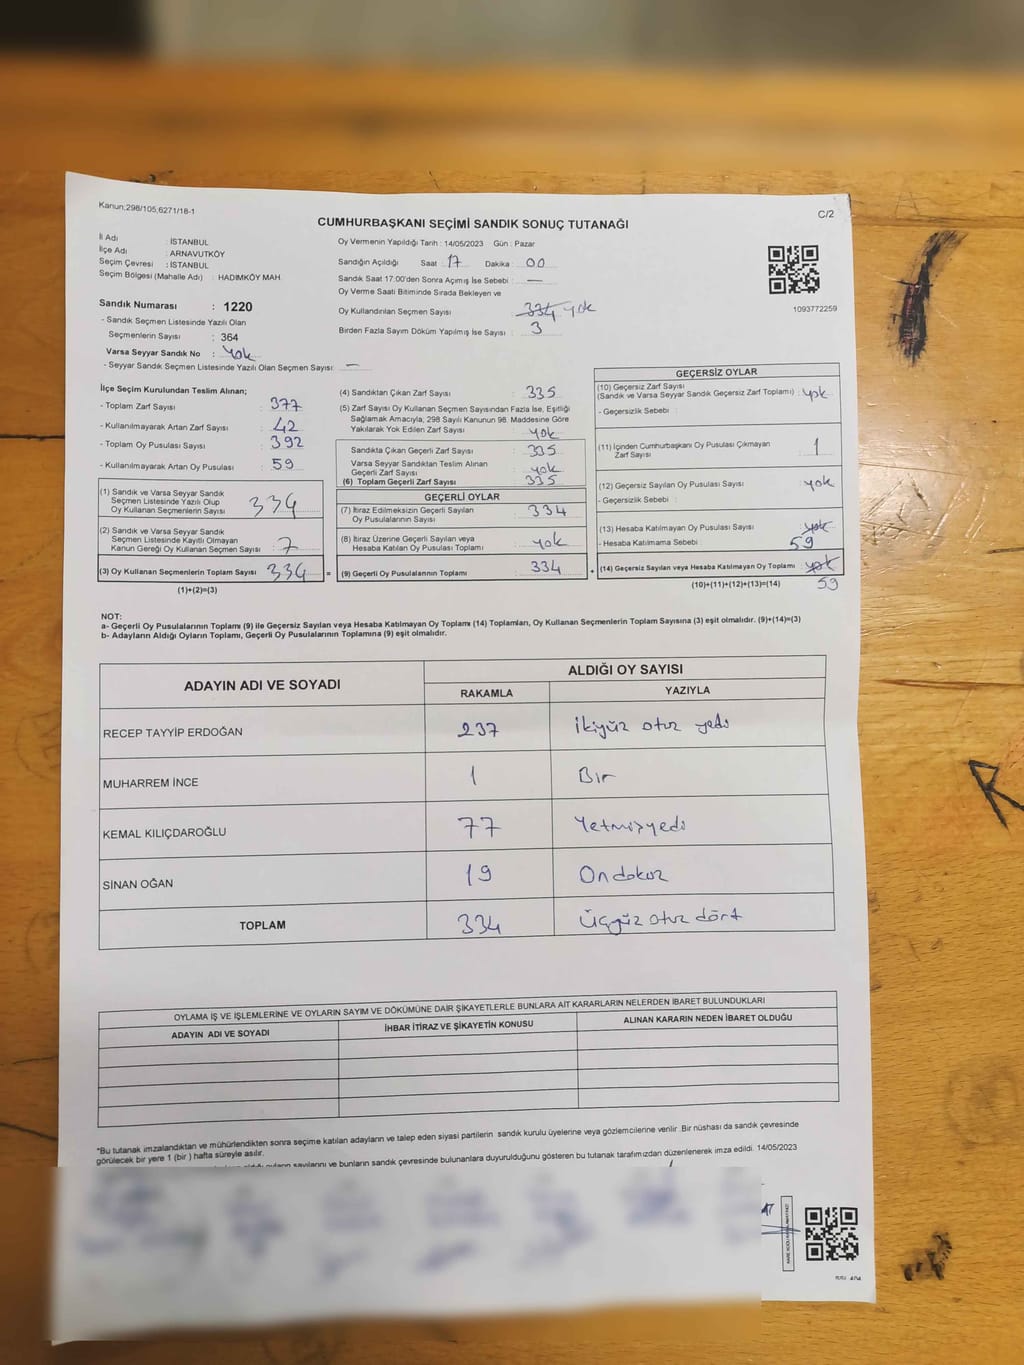 Kanun;298/105,6271/18-1
C/2
CUMHURBAŞKANI SEÇİMİ SANDIK SONUÇ TUTANAĞI
İl Adı : İSTANBUL
İlçe Adı : ARNAVUTKÖY
Seçim Çevresi : İSTANBUL
Seçim Bölgesi (Mahalle Adı) : HADIMKÖY MAH.
Sandık Numarası : 1220
- Sandık Seçmen Listesinde Yazılı Olan
Seçmenlerin Sayısı : 364
Varsa Seyyar Sandık No : Yok
- Seyyar Sandık Seçmen Listesinde Yazılı Olan Seçmen Sayısı: —
Oy Vermenin Yapıldığı Tarih : 14/05/2023 Gün : Pazar
Sandığın Açıldığı Saat : 17 Dakika : 00
Sandık Saat 17:00'den Sonra Açımış İse Sebebi : —
Oy Verme Saati Bitiminde Sırada Bekleyen ve
Oy Kullandırılan Seçmen Sayısı : 334 yok
Birden Fazla Sayım Döküm Yapılmış İse Sayısı : 3
1093772259
İlçe Seçim Kurulundan Teslim Alınan;
- Toplam Zarf Sayısı : 377
- Kullanılmayarak Artan Zarf Sayısı : 42
- Toplam Oy Pusulası Sayısı : 392
- Kullanılmayarak Artan Oy Pusulası : 59
(1) Sandık ve Varsa Seyyar Sandık
Seçmen Listesinde Yazılı Olup
Oy Kullanan Seçmenlerin Sayısı : 334
(2) Sandık ve Varsa Seyyar Sandık
Seçmen Listesinde Kayıtlı Olmayan
Kanun Gereği Oy Kullanan Seçmen Sayısı : 7
(3) Oy Kullanan Seçmenlerin Toplam Sayısı : 334 =
(1)+(2)=(3)
(4) Sandıktan Çıkan Zarf Sayısı : 335
(5) Zarf Sayısı Oy Kullanan Seçmen Sayısından Fazla İse, Eşitliği
Sağlamak Amacıyla; 298 Sayılı Kanunun 98. Maddesine Göre
Yakılarak Yok Edilen Zarf Sayısı : yok
Sandıkta Çıkan Geçerli Zarf Sayısı : 335
Varsa Seyyar Sandıktan Teslim Alınan
Geçerli Zarf Sayısı : yok
(6) Toplam Geçerli Zarf Sayısı : 335
GEÇERLİ OYLAR
(7) İtiraz Edilmeksizin Geçerli Sayılan
Oy Pusulasının Sayısı : 334
(8) İtiraz Üzerine Geçerli Sayılan veya
Hesaba Katılan Oy Pusulası Toplamı : yok
(9) Geçerli Oy Pusulalarının Toplamı : 334 +
GEÇERSİZ OYLAR
(10) Geçersiz Zarf Sayısı
(Sandık ve Varsa Seyyar Sandık Geçersiz Zarf Toplamı) : yok
- Geçersizlik Sebebi :
(11) İçinden Cumhurbaşkanı Oy Pusulası Çıkmayan
Zarf Sayısı : 1
(12) Geçersiz Sayılan Oy Pusulası Sayısı : yok
- Geçersizlik Sebebi :
(13) Hesaba Katılmayan Oy Pusulası Sayısı : yok
- Hesaba Katılmama Sebebi : 59
(14) Geçersiz Sayılan veya Hesaba Katılmayan Oy Toplamı : yok
(10)+(11)+(12)+(13)=(14) 59
NOT:
a- Geçerli Oy Pusulalarının Toplamı (9) ile Geçersiz Sayılan veya Hesaba Katılmayan Oy Toplamı (14) Toplamları, Oy Kullanan Seçmenlerin Toplam Sayısına (3) eşit olmalıdır. (9)+(14)=(3)
b- Adayların Aldığı Oyların Toplamı, Geçerli Oy Pusulalarının Toplamına (9) eşit olmalıdır.
ADAYIN ADI VE SOYADI
ALDIĞI OY SAYISI
RAKAMLA YAZIYLA
RECEP TAYYİP ERDOĞAN 237 İkiyüz otuz yedi
MUHARREM İNCE 1 Bir
KEMAL KILIÇDAROĞLU 77 Yetmişyedi
SİNAN OĞAN 19 Ondokuz
TOPLAM 334 Üçyüz otuz dört
OYLAMA İŞ VE İŞLEMLERİNE VE OYLARIN SAYIM VE DÖKÜMÜNE DAİR ŞİKAYETLERLE BUNLARA AİT KARARLARIN NELERDEN İBARET BULUNDUKLARI
ADAYIN ADI VE SOYADI İHBAR İTİRAZ VE ŞİKAYETİN KONUSU ALINAN KARARIN NEDEN İBARET OLDUĞU
*Bu tutanak imzalandıktan ve mühürlendikten sonra seçime katılan adayların ve talep eden siyasi partilerin sandık kurulu üyelerine veya gözlemcilerine verilir .Bir nüshası da sandık çevresinde
görülecek bir yere 1 (bir ) hafta süreyle asılır.
oyların sayılarını ve bunların sandık çevresinde bulunanlara duyurulduğunu gösteren bu tutanak tarafımızdan düzenlenerek imza edildi. 14/05/2023
R